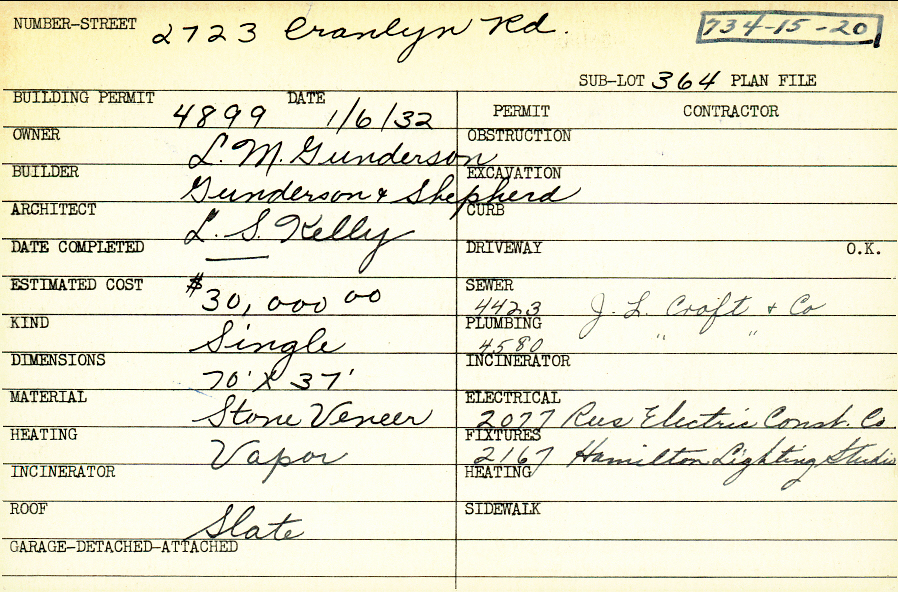 NUMBER-STREET 2723 Cranlyn Rd. 734-15-20
SUB-LOT 364 PLAN FILE
BUILDING PERMIT 4899 DATE 1/6/32 PERMIT CONTRACTOR
OWNER L. M. Gunderson OBSTRUCTION
BUILDER Gunderson & Shepherd EXCAVATION
ARCHITECT L. S. Kelly CURB
DATE COMPLETED — DRIVEWAY O.K.
ESTIMATED COST $30,000 00 SEWER 4423 J. L. Croft & Co
KIND Single PLUMBING 4580 " "
DIMENSIONS 70' X 37' INCINERATOR
MATERIAL Stone Veneer ELECTRICAL 2077 Rees Electric Const. Co
HEATING Vapor FIXTURES 2167 Hamilton Lighting Studio
INCINERATOR HEATING
ROOF Slate SIDEWALK
GARAGE-DETACHED-ATTACHED